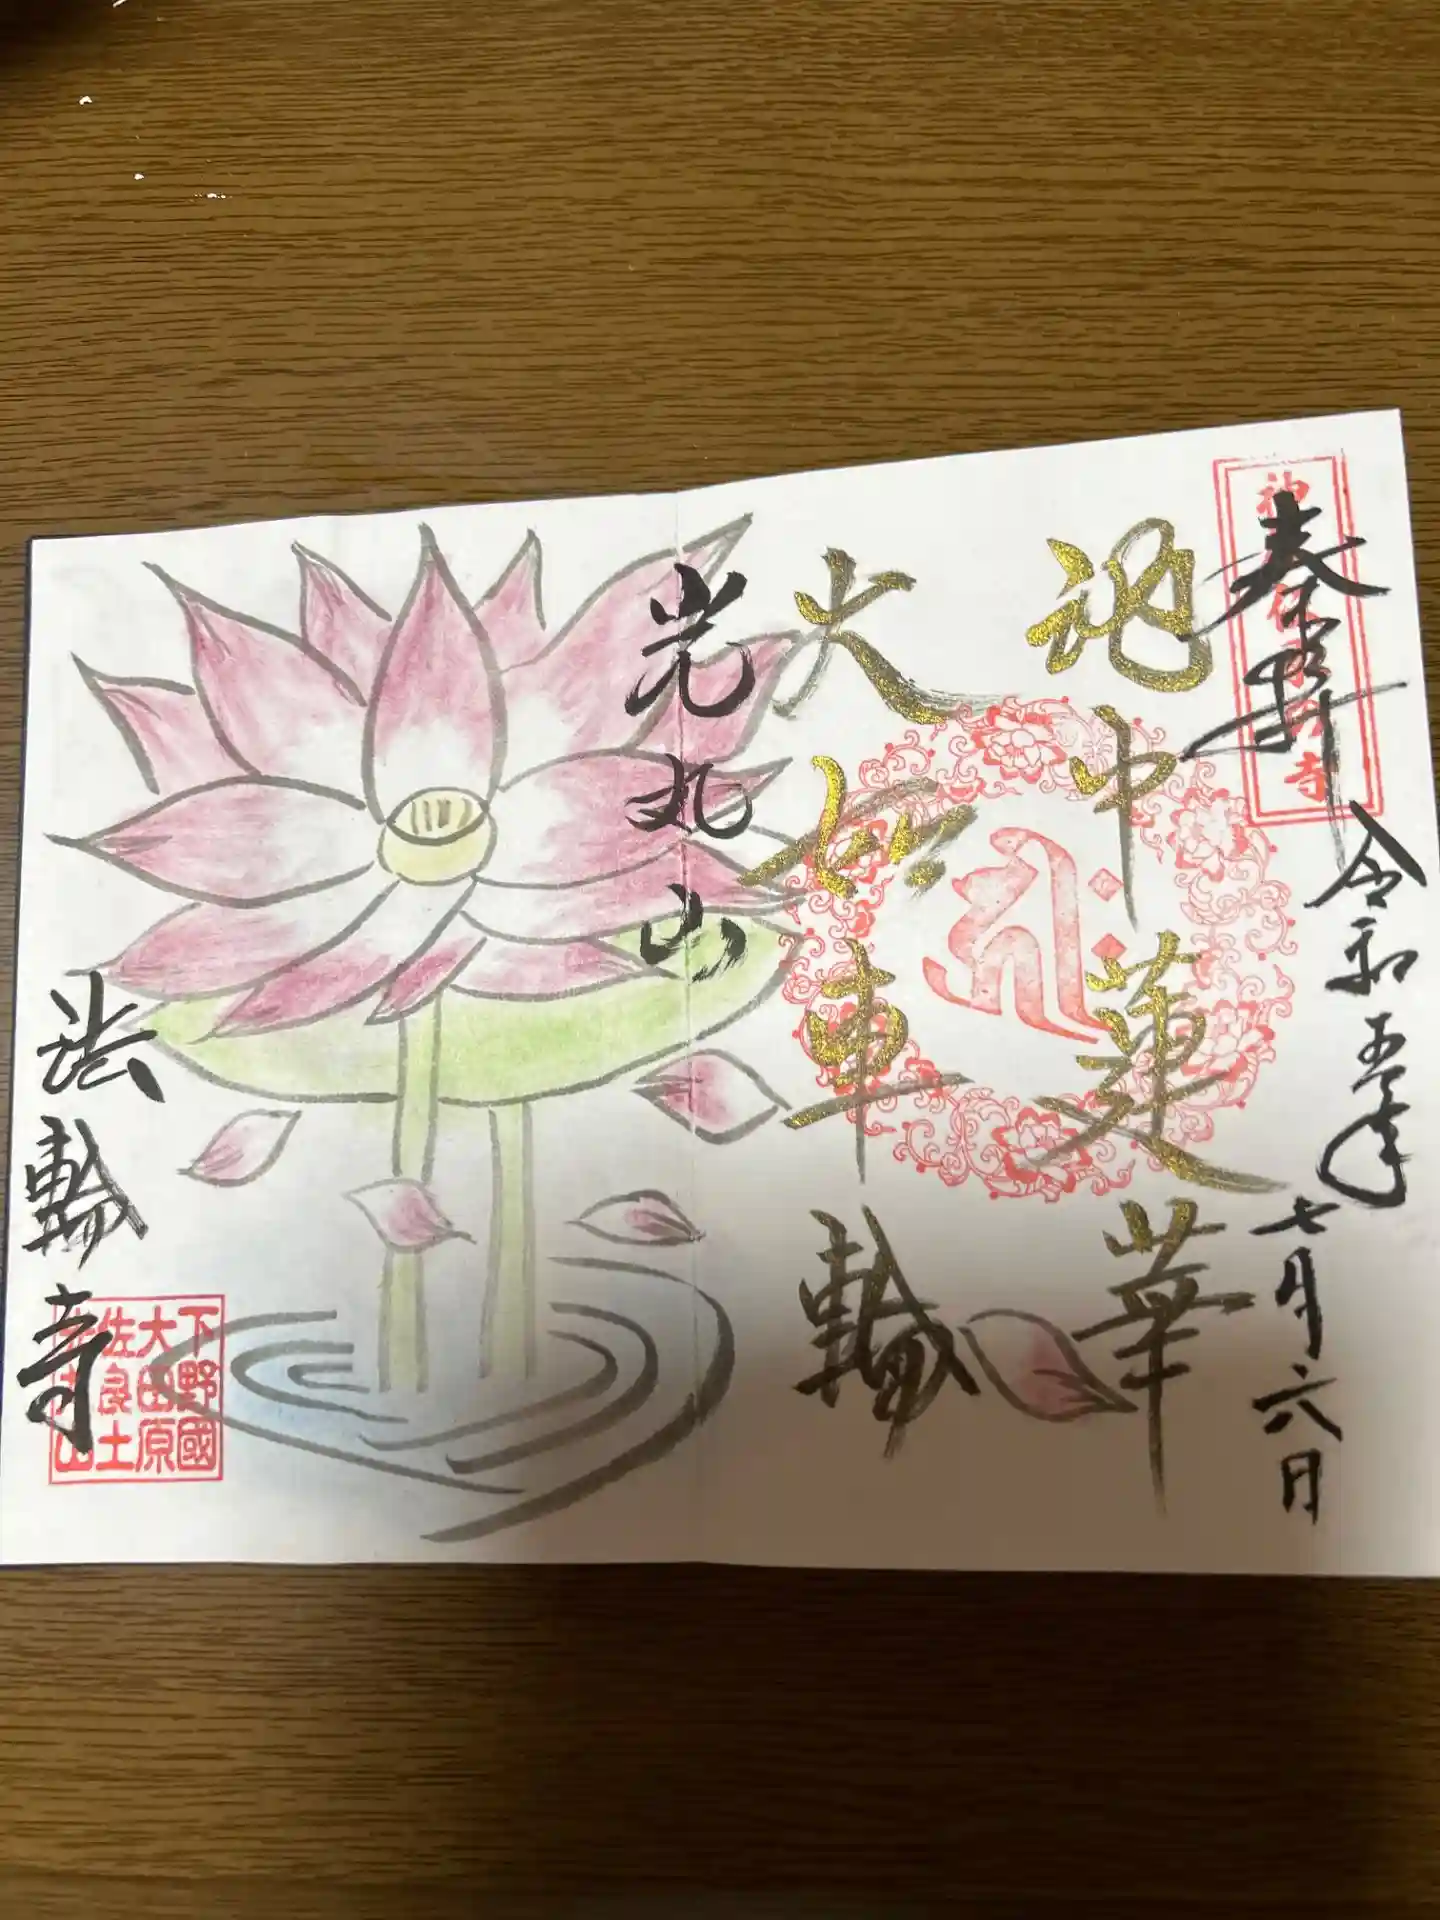 奉拝
令和五年七月六日
池中蓮華
大如車輪
光丸山
法輪寺
下野國
大田原
佐良土
光丸山